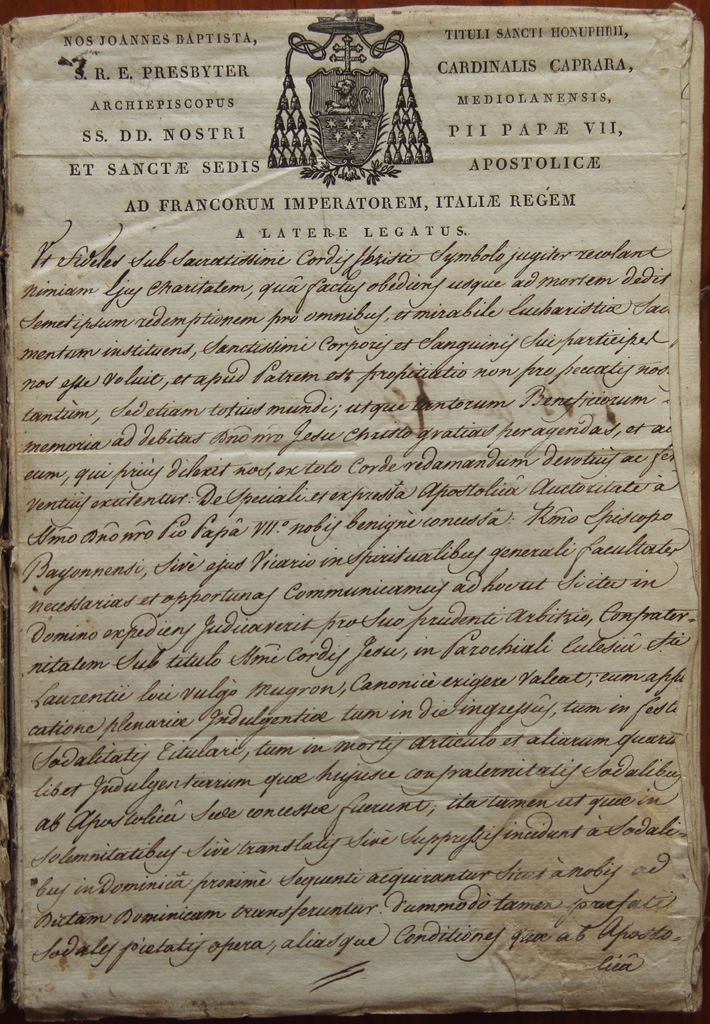 NOS JOANNES BAPTISTA, TITULI SANCTI HONUPHRII,
S. R. E. PRESBYTER CARDINALIS CAPRARA,
ARCHIEPISCOPUS MEDIOLANENSIS,
SS. DD. NOSTRI PII PAPÆ VII,
ET SANCTÆ SEDIS APOSTOLICÆ
AD FRANCORUM IMPERATOREM, ITALIÆ REGEM
A LATERE LEGATUS.
Ut Fideles sub Sacratissimi Cordis Christi Symbolo jugiter recolant
nimiam Ejus Charitatem, quâ factus obediens usque ad mortem dedit
Semetipsum redemptionem pro omnibus, et mirabile Eucharistiæ Sacra
mentum instituens, Sanctissimi Corporis et Sanguinis Sui participes
nos esse voluit, et apud Patrem est propitiatio non pro peccatis nos.
tantùm, Sed etiam totius mundi; utque tantorum Beneficiorum
memoria ad debitas Dno nro Jesu Christo gratias peragendas, et ad
eum, qui prius dilexit nos, ex toto Corde redamandum devotius ac fer
ventius excitentur: De Speciali et expressa Apostolicâ Auctoritate à
SSmo Dno nro Pio Papâ VII.º nobis benignè concessâ: Rmo Episcopo
Bayonnensi, Sivè ejus Vicario in Spiritualibus generali facultates
necessarias et opportunas Communicamus ad hoc ut Si ita in
Domino expediens Judicaverit pro Suo prudenti Arbitrio, Confrater-
nitatem Sub titulo SSmi Cordis Jesu, in Parochiali Ecclesiâ Sti
Laurentii loci vulgò Mugron, Canonicè erigere Valeat; cum appli
catione plenariæ Indulgentiæ tum in die ingressûs, tum in festo
Sodalitatis Titulari, tum in mortis Articulo et aliarum quarum
libet Indulgentiarum quæ hujusce confraternitatis Sodalibus
ab Apostolicâ Sede concessæ fuerunt; ita tamen ut quæ in
Solemnitatibus Sivè translatis Sivè Suppressis incidunt à Sodali-
bus in Dominicâ proximè Sequenti acquirantur à nobis ad
Dictam Dominicam transferuntur. Dummodò tamen præfati
Sodales pietatis opera, aliasque Conditiones quæ ab Aposto-
licâ